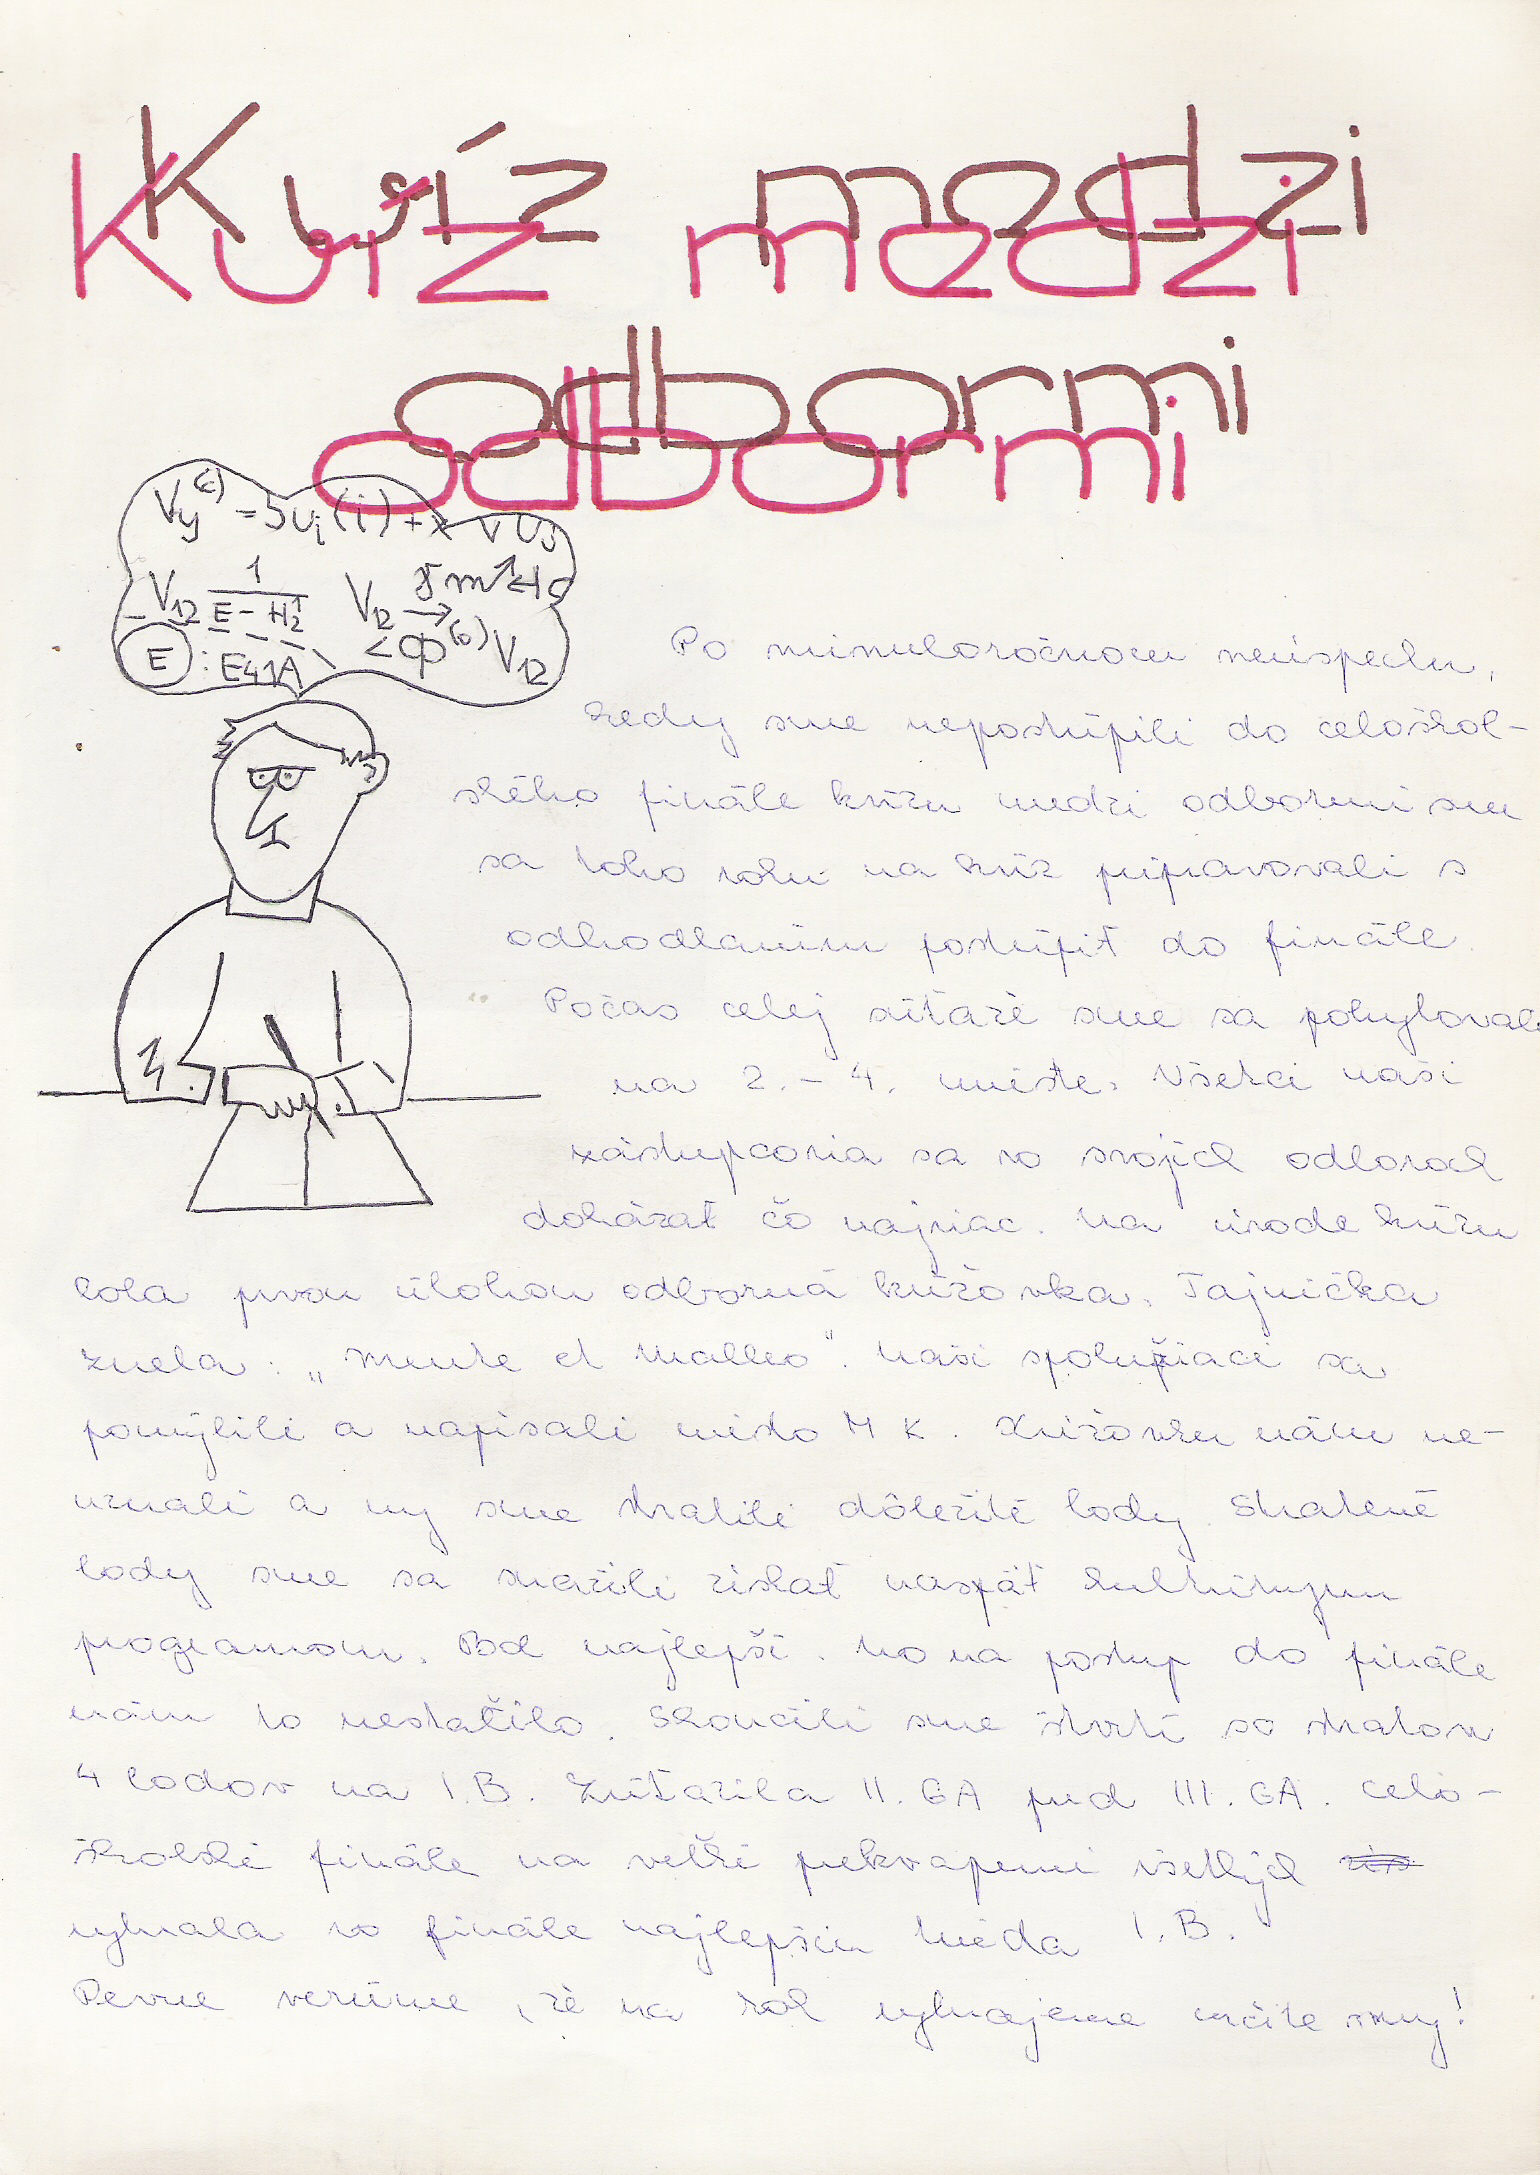 Kvíz medzi
odbormi
Vy = 5Ui(i) + x V Us
V12 1 / E - H2 V12 →
E : E41A <Φ(0) V12
Po minuloročnom neúspechu,
kedy sme nepostúpili do celoškol-
ského finále kvízu medzi odbormi sme
sa toho roku na kvíz pripravovali s
odhodlaním postúpiť do finále.
Počas celej súťaže sme sa pohybovali
na 2. - 4. mieste. Všetci naši
zástupcovia sa vo svojich odboroch
dokázať čo najviac. Na úvode kvízu
bola prvou úlohou odborná krížovka. Tajnička
znela: „Mente et Malleo". Naši spolužiaci sa
pomýlili a napísali miesto M K. Krížovku nám ne-
uznali a my sme stratili dôležité body. Stratené
body sme sa snažili získať naspäť kultúrnym
programom. Bol najlepší. No na postup do finále
nám to nestačilo. Skončili sme štvrtí so stratou
4 bodov na I.B. Zvíťazila II. GA pred III. GA. Celo-
školské finále na veľké prekvapenie všetkých
vyhrala vo finále najlepšia trieda I.B.
Pevne veríme, že na rok vyhrajeme určite my!